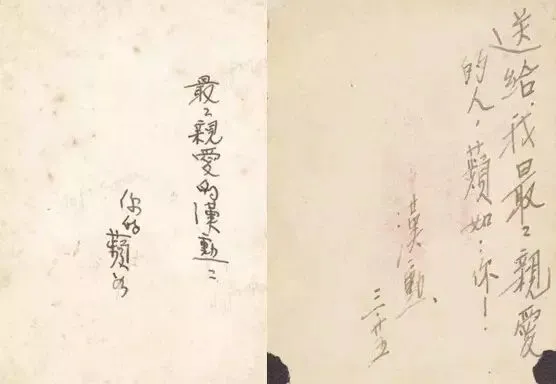 最々親愛的漢勳：
你的蘋如
送給，我最々親愛
的人，蘋如，你！
漢勳、
三·廿五